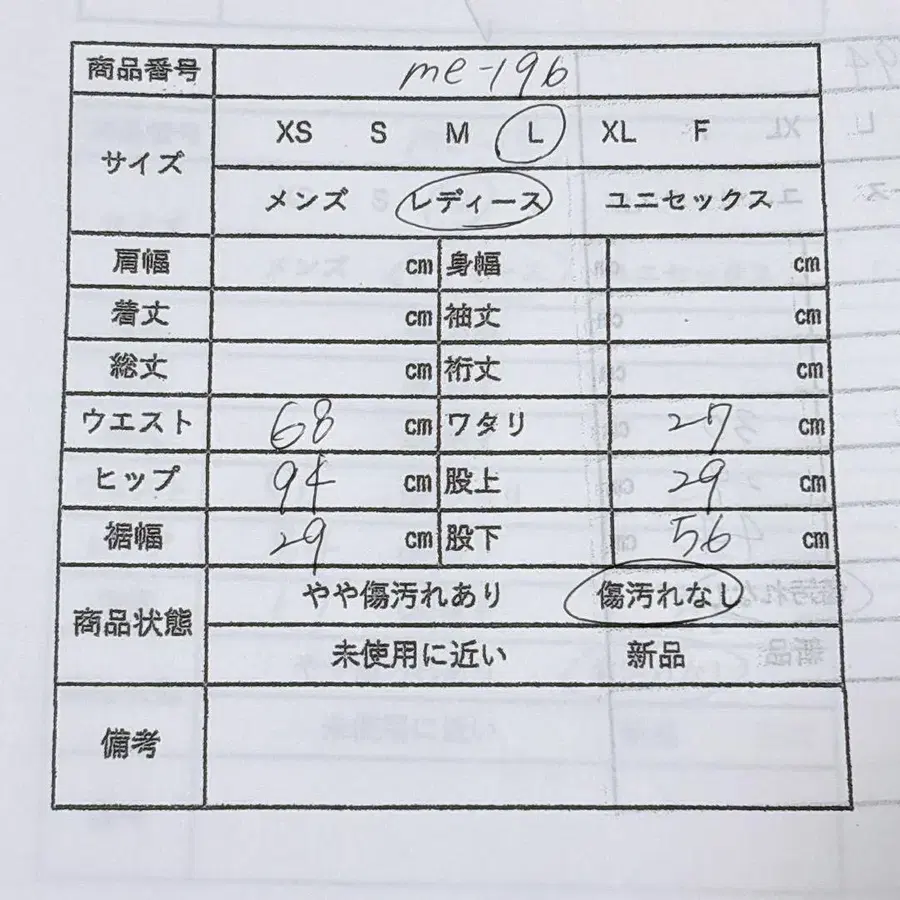 商品番号 me-196
サイズ XS S M L XL F
メンズ レディース ユニセックス
肩幅 cm 身幅 cm
着丈 cm 袖丈 cm
総丈 cm 裄丈 cm
ウエスト 68 cm ワタリ 27 cm
ヒップ 94 cm 股上 29 cm
裾幅 29 cm 股下 56 cm
商品状態 やや傷汚れあり 傷汚れなし
未使用に近い 新品
備考